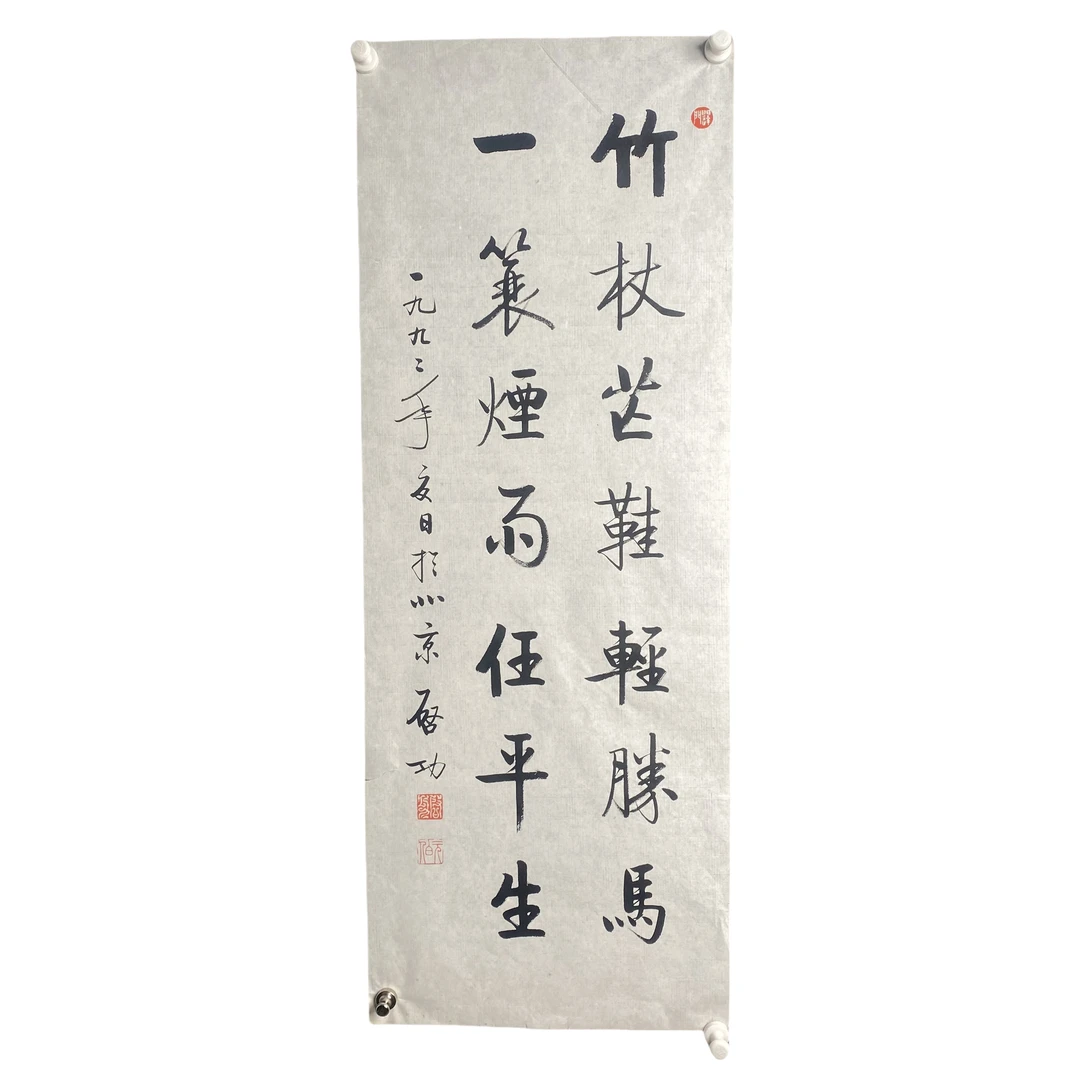 竹杖芒鞋輕勝馬
一簑煙雨任平生
一九九二年夏日於北京 啓功
啓功
元白